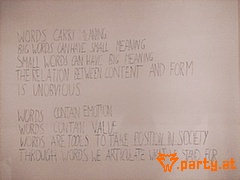 WORDS CARRI MEANING
BIG WORDS CAN HAVE SMALL MEANING
SMALL WORDS CAN HAVE BIG MEANING
THE RELATION BETWEEN CONTENT AND FORM
IS UNOBVIOUS
WORDS CONTAIN EMOTION
WORDS CONTAIN VALUE
WORDS ARE TOOLS TO TAKE POSITION IN SOCIETY
THROUGH WORDS WE ARTICULATE WHAT WE STAND FOR
party.at